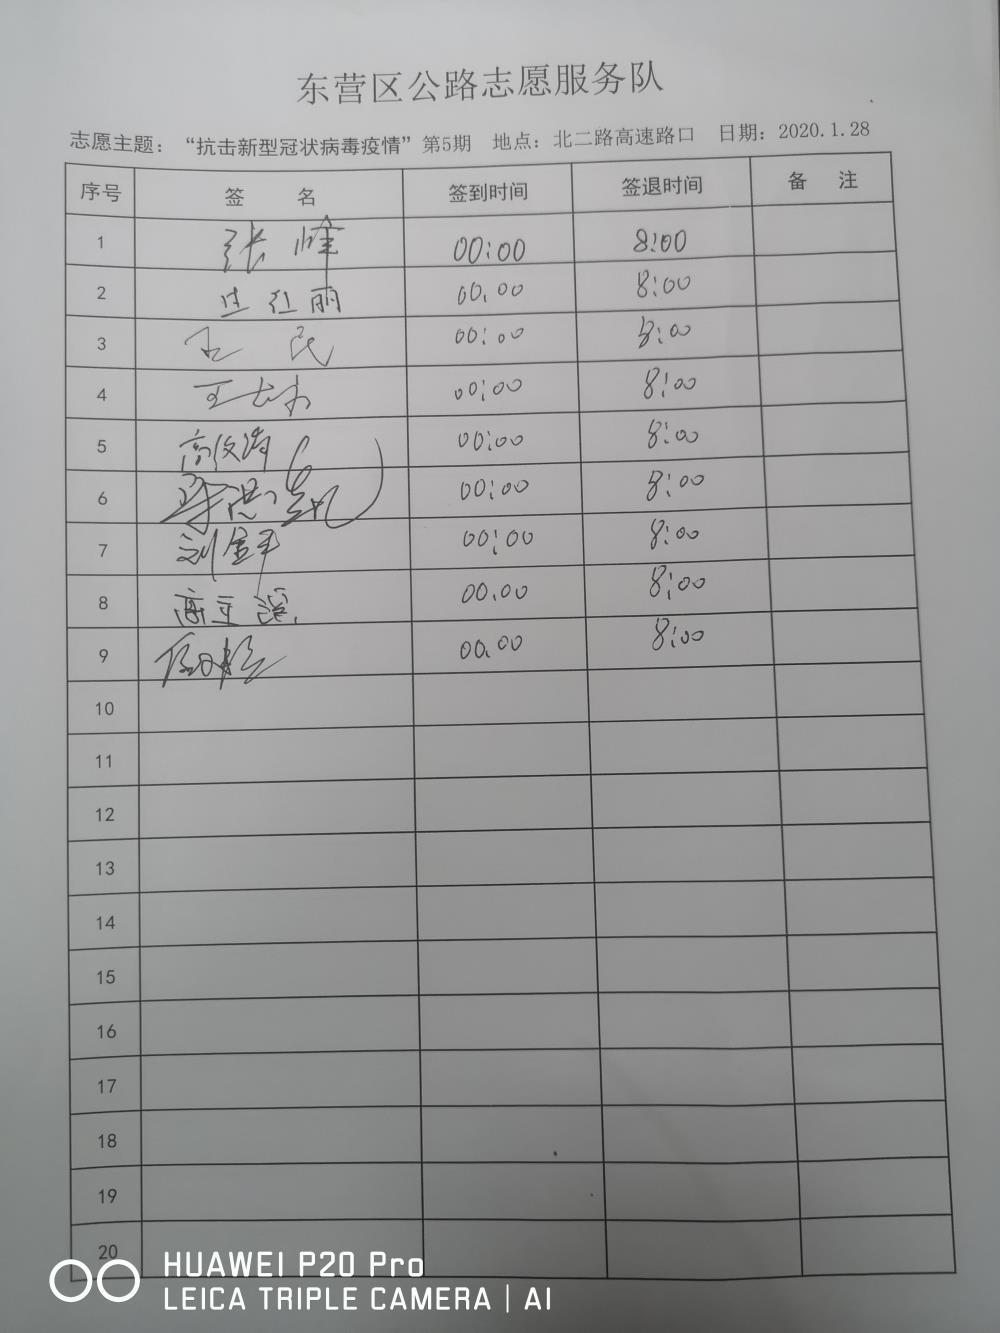 东营区公路志愿服务队
志愿主题：“抗击新型冠状病毒疫情”第5期 地点：北二路高速路口 日期：2020.1.28
序号 签 名 签到时间 签退时间 备 注
1 张峰 00:00 8:00
2 红丽 00.00 8:00
3 民 00:00 8:00
4 王 00:00 8:00
5 高 00:00 8:00
6 00:00 8:00
7 刘金平 00:00 8:00
8 高 00.00 8:00
9 00.00 8:00
10
11
12
13
14
15
16
17
18
19
20
HUAWEI P20 Pro
LEICA TRIPLE CAMERA | AI